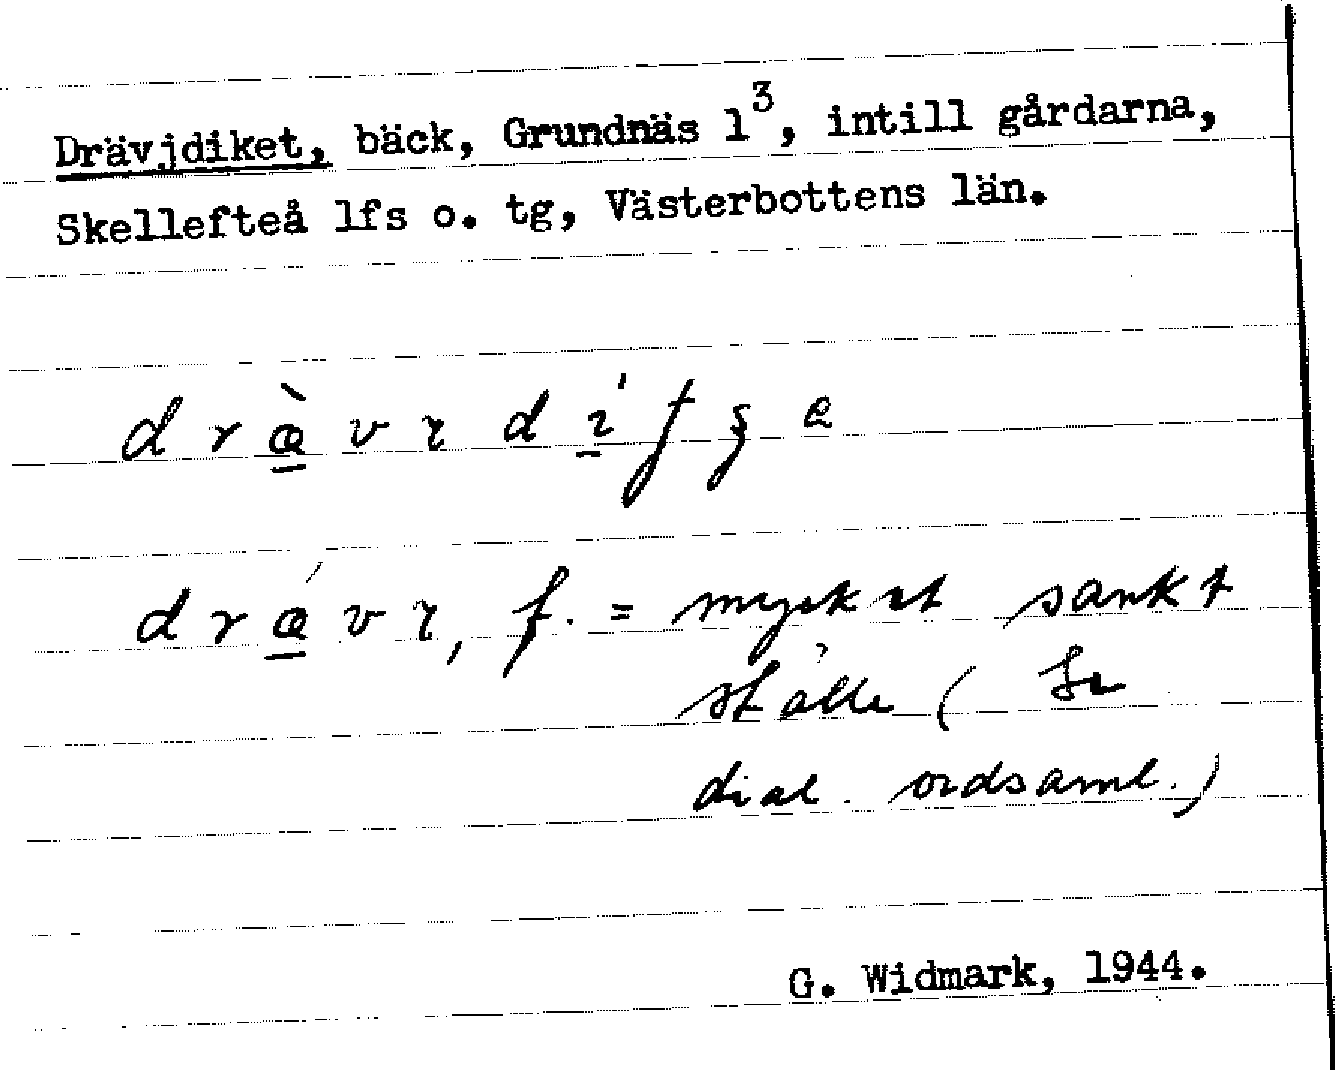 Drävjdiket, bäck, Grundnäs 1³, intill gårdarna,
Skellefteå lfs o. tg, Västerbottens län.
mycket sankt
ställe ( Se
dial. ordsaml.)
G. Widmark, 1944.